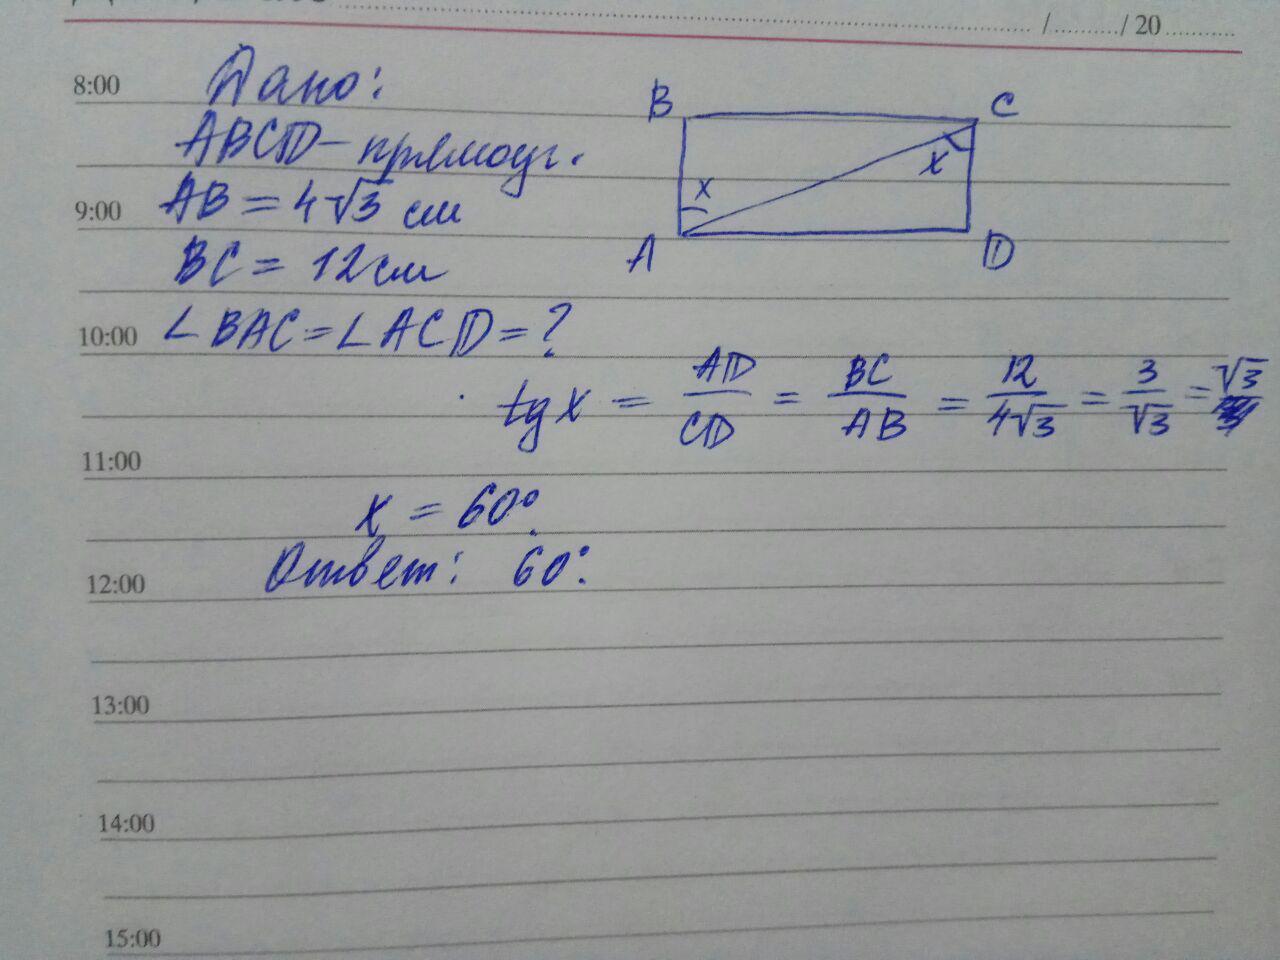 / / 20
8:00 Дано:
B C
ABCD - прямоуг.
x x
9:00 AB = 4√3 см
A D
BC = 12 см
10:00 ∠BAC = ∠ACD = ?
tg x = AD/CD = BC/AB = 12/4√3 = 3/√3 = √3
11:00
x = 60°.
12:00 Ответ: 60°.
13:00
14:00
15:00